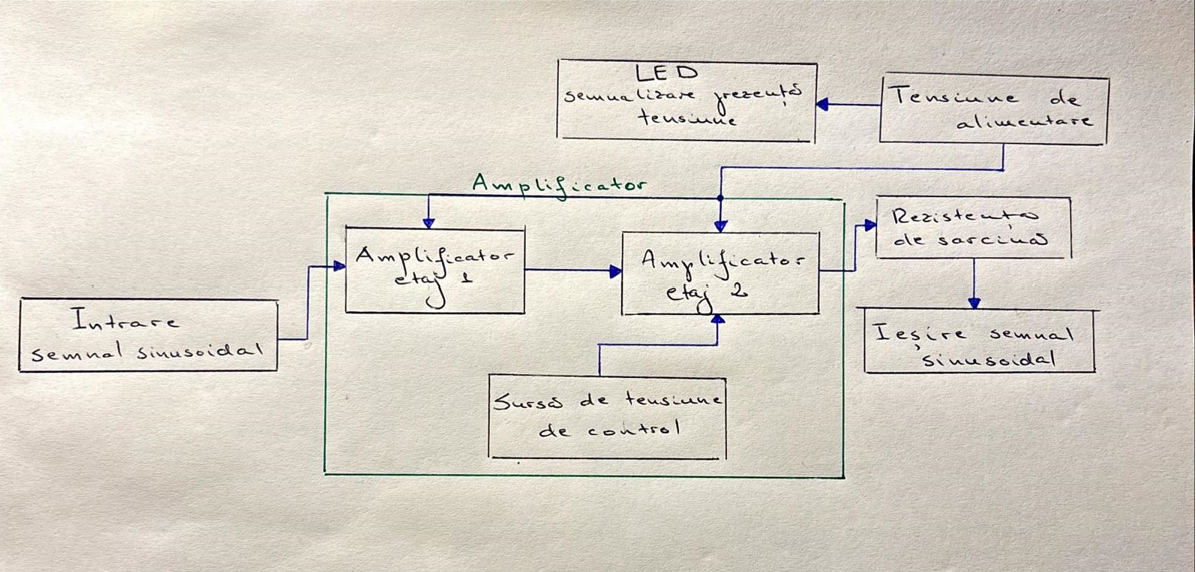 LED
semnalizare prezență
tensiune
Tensiune de
alimentare
Amplificator
Rezistență
de sarcină
Amplificator
etaj 1
Amplificator
etaj 2
Intrare
semnal sinusoidal
Ieșire semnal
sinusoidal
Sursă de tensiune
de control